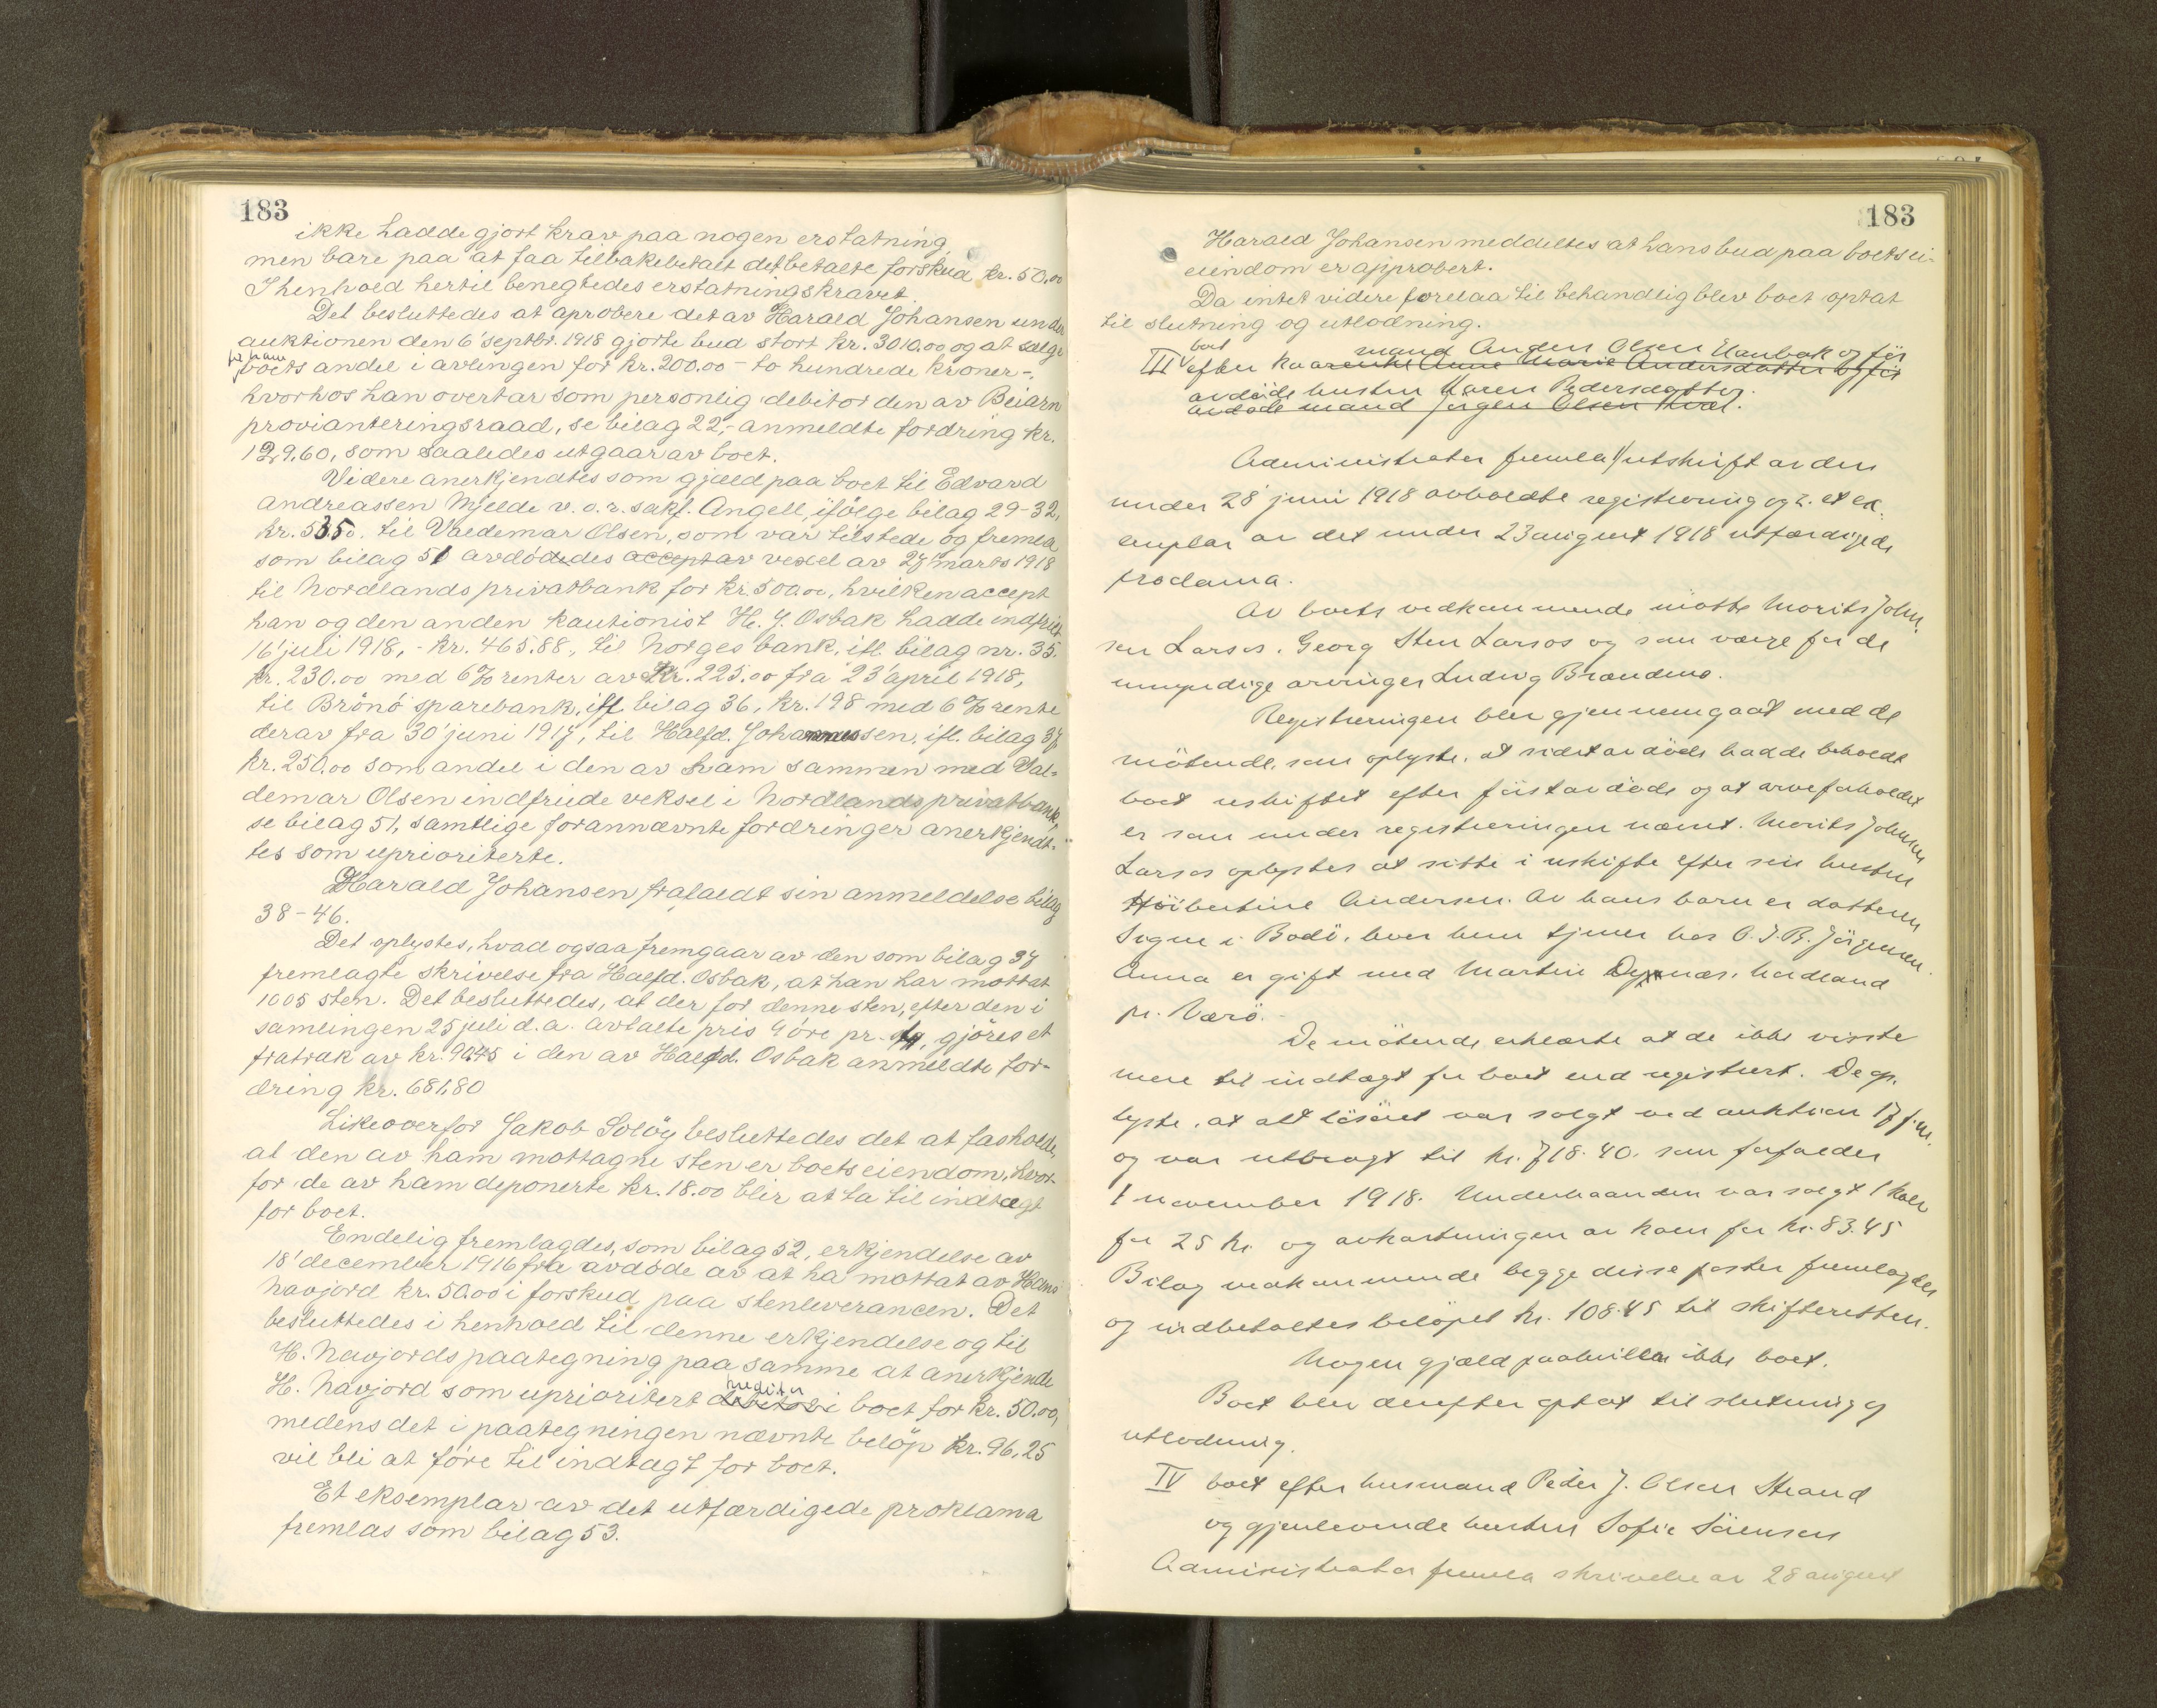 183
ikke hadde gjort krav paa nogen erstatning,
men bare paa at faa tilbakebetalt det betalte forskud kr. 50,00
I henhold hertil benegtedes erstatningskravet.
Det besluttedes at aprobere det av Harald Johansen under
auktionen den 6' septbr. 1918 gjorte bud stort kr. 3010.00 og at sælge
til ham
boets andel i avlingen for kr. 200.00 - to hundrede kroner -,
hvorhos han overtar som personlig debitor den av Beiarn
provianteringsraad, se bilag 22,- anmeldte fordring kr.
129.60, som saaledes utgaar av boet.
Videre anerkjendtes som gjæld paa boet til Edvard
Andreassen Mjelde v. o. r. sakf. Angell, ifölge bilag 29-32,
kr. 535.0. til Valdemar Olsen, som var tilstede og fremla
som bilag 51 avdödedes accept av vexel av 27' marts 1918
til Nordlands privatbank for kr. 500.00, hvilken accept
han og den anden kautionist H. J. Osbak hadde indfriet
16' juli 1918, - kr. 465.88, til Norges bank, ifl. bilag nr. 35.
kr. 230.00 med 6% renter av kr. 225.00 fra 23' april 1918,
til Brönö sparebank, ifl. bilag 36, kr. 198 med 6% rente
derav fra 30' juni 1917, til Halfd. Johannessen, ifl. bilag 37,
kr. 250.00 som andel i den av ham sammen med Val-
demar Olsen indfriede veksel i Nordlands privatbank,
se bilag 51, samtlige forannævnte fordringer anerkjend-
tes som uprioriterte.
Harald Johansen frafaldt sin anmeldelse bilag
38-46.
Det oplystes, hvad ogsaa fremgaar av den som bilag 34
fremlagte skrivelse fra Halfd. Osbak, at han har mottat
1005 sten. Det besluttedes, at der for denne sten, efter den i
samlingen 25 juli d.a. avtalte pris 9 öre pr. , gjöres et
fratrak av kr. 90.45 i den av Halfd. Osbak anmeldte for-
dring kr. 681,80
Likeoverfor Jakob Solöy besluttedes det at fastholde,
at den av ham mottagne sten er boets eiendom, hvor-
for de av ham deponerte kr. 18.00 blir at ta til indtægt
for boet.
Endelig fremlagdes, som bilag 52, erkjendelse av
18' december 1916 fra avdöde av at ha mottat av Hans
Navjord kr. 50.00 i forskud paa stenleverancen. Det
besluttedes i henhold til denne erkjendelse og til
H. Navjords paategning paa samme at anerkjende
kreditor
H. Navjord som uprioritert debitor i boet for kr. 50.00,
medens det i paategningen nævnte belöp kr. 96,25
vil bli at före til indtægt for boet.
Et eksemplar av det utfærdigede proklama
fremlas som bilag 53.
183
Harald Johansen meddeltes at hans bud paa boets ei-
eiendom er approbert.
Da intet videre forelaa til behandlig blev boet optat
til slutning og utlodning.
boet mand Anders Olsen Haubak og för
III efter kaarenke Anne Marie Andersdatter og för
avdöde hustru Karen Pedersdatter.
avdöde mand Jörgen Olsen Hval.
Administrator fremla 1/ utskrift av den
under 28' juni 1918 avholdte registrering og 2. et ex.
emplar av det under 23 august 1918 utfærdigede
proclama.
Av boets vedkommende mötte Morits John-
sen Larsos, Georg Sten Larsos og som værge for de
umyndige arvinger Ludvig Brændmo.
Registreringen blev gjennemgaat med de
mötende, som oplyste, at sidstavdöde hadde beholdt
boet uskiftet efter förstavdöde og at arveforholdet
er som under registreringen nævnt. Morits Johnsen
Larsos oplystes at sitte i uskifte efter sin hustru
Höibertine Andersen. Av hans barn er datteren
Signe i Bodö, hvor hun tjener hos O. J. B. Jörgensen.
Anna er gift med Martin Dypnæs, Nordland
pr. Værö.
De mötende erklærte at de ikke visste
mere til indtægt for boet end registrert. De op-
lyste, at alt lösöret var solgt ved auktion 17 f.m.
og var utbragt til kr. 718.40. som forfalder
1 november 1918. Underhaanden var solgt 1 kalv
for 25 kr. og avkastningen av koen for kr. 83.45
Bilag vedkommende begge disse poster fremlagdes
og indbetaltes belöpet kr. 108.45 til skifteretten.
Nogen gjæld paahviller ikke boet.
Boet blev derefter optat til slutning og
utlodning.
IV boet efter husmand Peder J. Olsen Strand
og gjenlevende hustru Sofie Sörensen
Administrator fremla skrivelse av 28 august